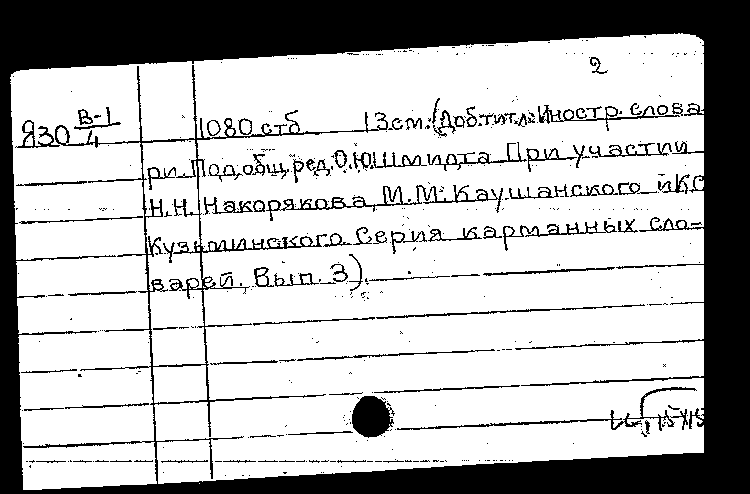 2
Я30 В-1/4 1080 стб 13см. (Доб.тит.л: Иностр. слова
ри. Под общ. ред. О.Ю.Шмидта При участии
Н.Н. Накорякова, М.М. Каушанского и К.С
Кузьминского. Серия карманных сло=
варей. Вып. 3).